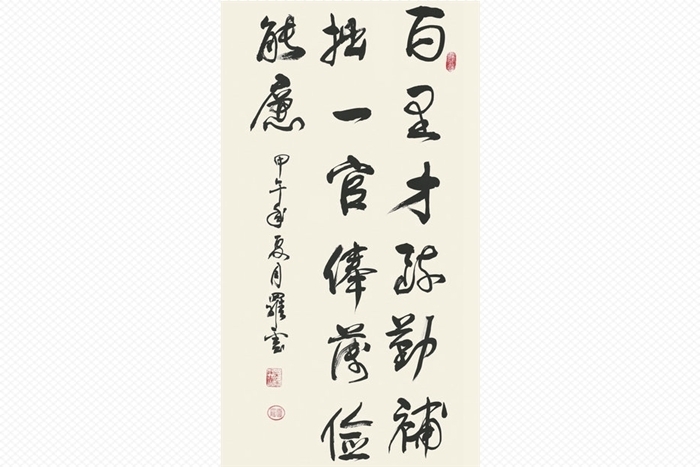 百里才疏勤補
拙一官俸薄儉
能廉
甲午年夏月羅雲